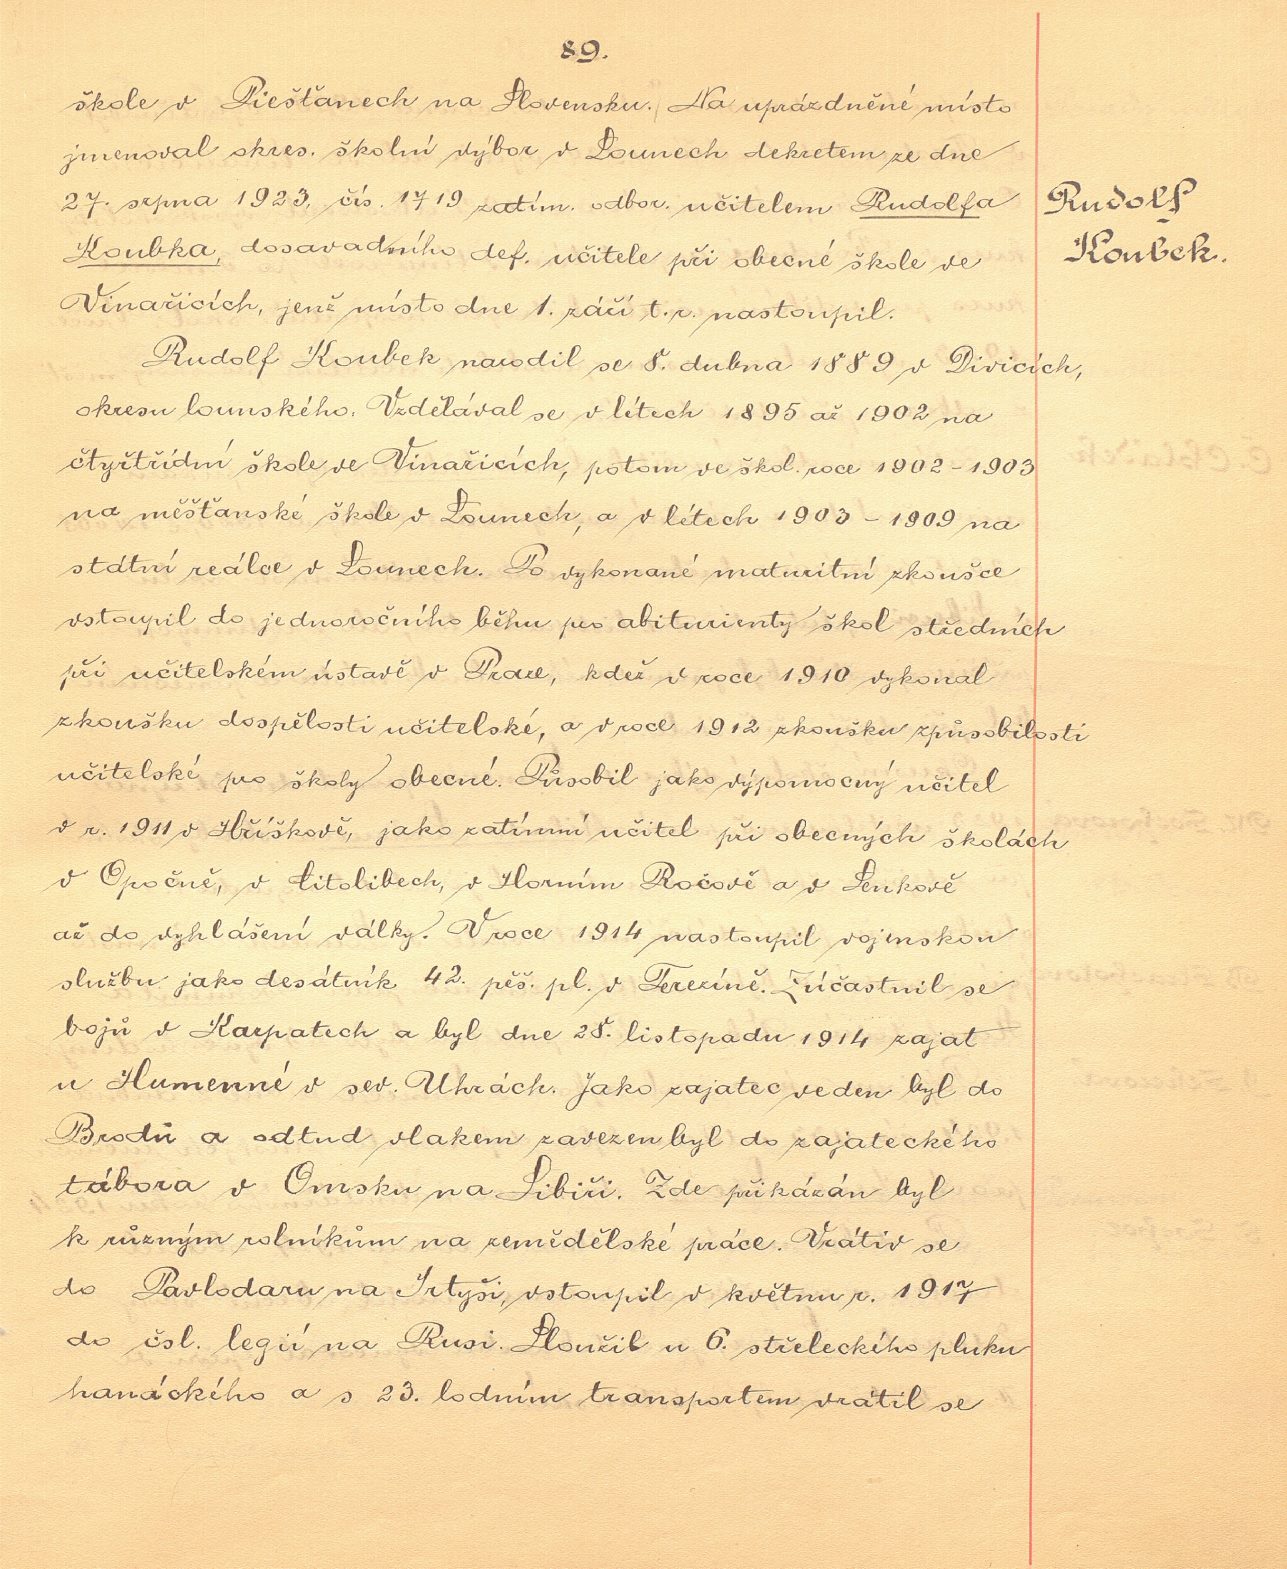 89.
škole v Piešťanech na Slovensku. Na uprázdněné místo
jmenoval okres. školní výbor v Lounech dekretem ze dne
27. srpna 1923, čís. 1719 zatím. odbor. učitelem Rudolfa
Rudolf
Koubka, dosavadního def. učitele při obecné škole ve
Koubek.
Vinařicích, jenž místo dne 1. září t. r. nastoupil.
Rudolf Koubek narodil se 8. dubna 1889 v Divicích,
okresu lounského. Vzdělával se v létech 1895 až 1902 na
čtyřtřídní škole ve Vinařicích, potom ve škol. roce 1902-1903
na měšťanské škole v Lounech, a v létech 1903-1909 na
státní reálce v Lounech. Po vykonané maturitní zkoušce
vstoupil do jednoročního běhu pro abiturienty škol středních
při učitelském ústavě v Praze, kdež v roce 1910 vykonal
zkoušku dospělosti učitelské, a v roce 1912 zkoušku způsobilosti
učitelské pro školy obecné. Působil jako výpomocný učitel
v r. 1911 v Hříškově, jako zatímní učitel při obecných školách
v Opočně, v Citolibech, v Horním Ročově a v Senkově
až do vyhlášení války. V roce 1914 nastoupil vojenskou
službu jako desátník 42. pěš. pl. v Terezíně. Zúčastnil se
bojů v Karpatech a byl dne 28. listopadu 1914 zajat
u Humenné v sev. Uhrách. Jako zajatec veden byl do
Brodů a odtud vlakem zavezen byl do zajateckého
tábora v Omsku na Sibiři. Zde přikázán byl
k různým rolníkům na zemědělské práce. Vrátiv se
do Pavlodaru na Irtyši, vstoupil v květnu r. 1917
do čsl. legií na Rusi. Sloužil u 6. střeleckého pluku
hanáckého a s 23. lodním transportem vrátil se